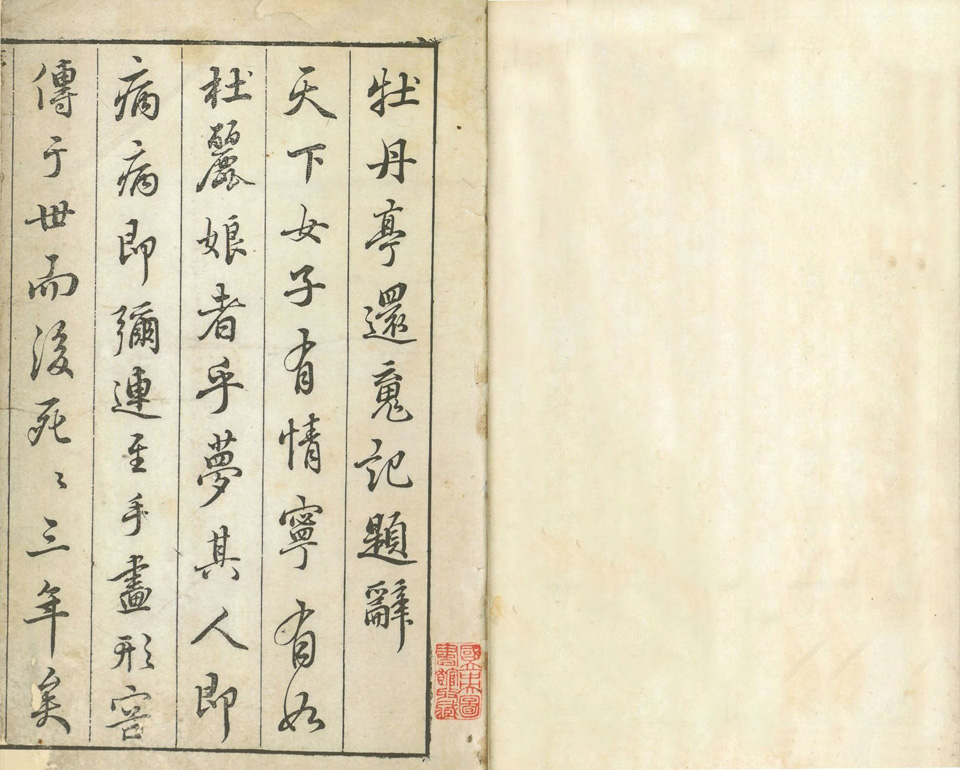 牡丹亭還魂記題辭
天下女子有情寧有如
杜麗娘者乎夢其人即
病病即彌連至手畫形容
傳于世而後死〻三年矣
國立中央圖書館收藏